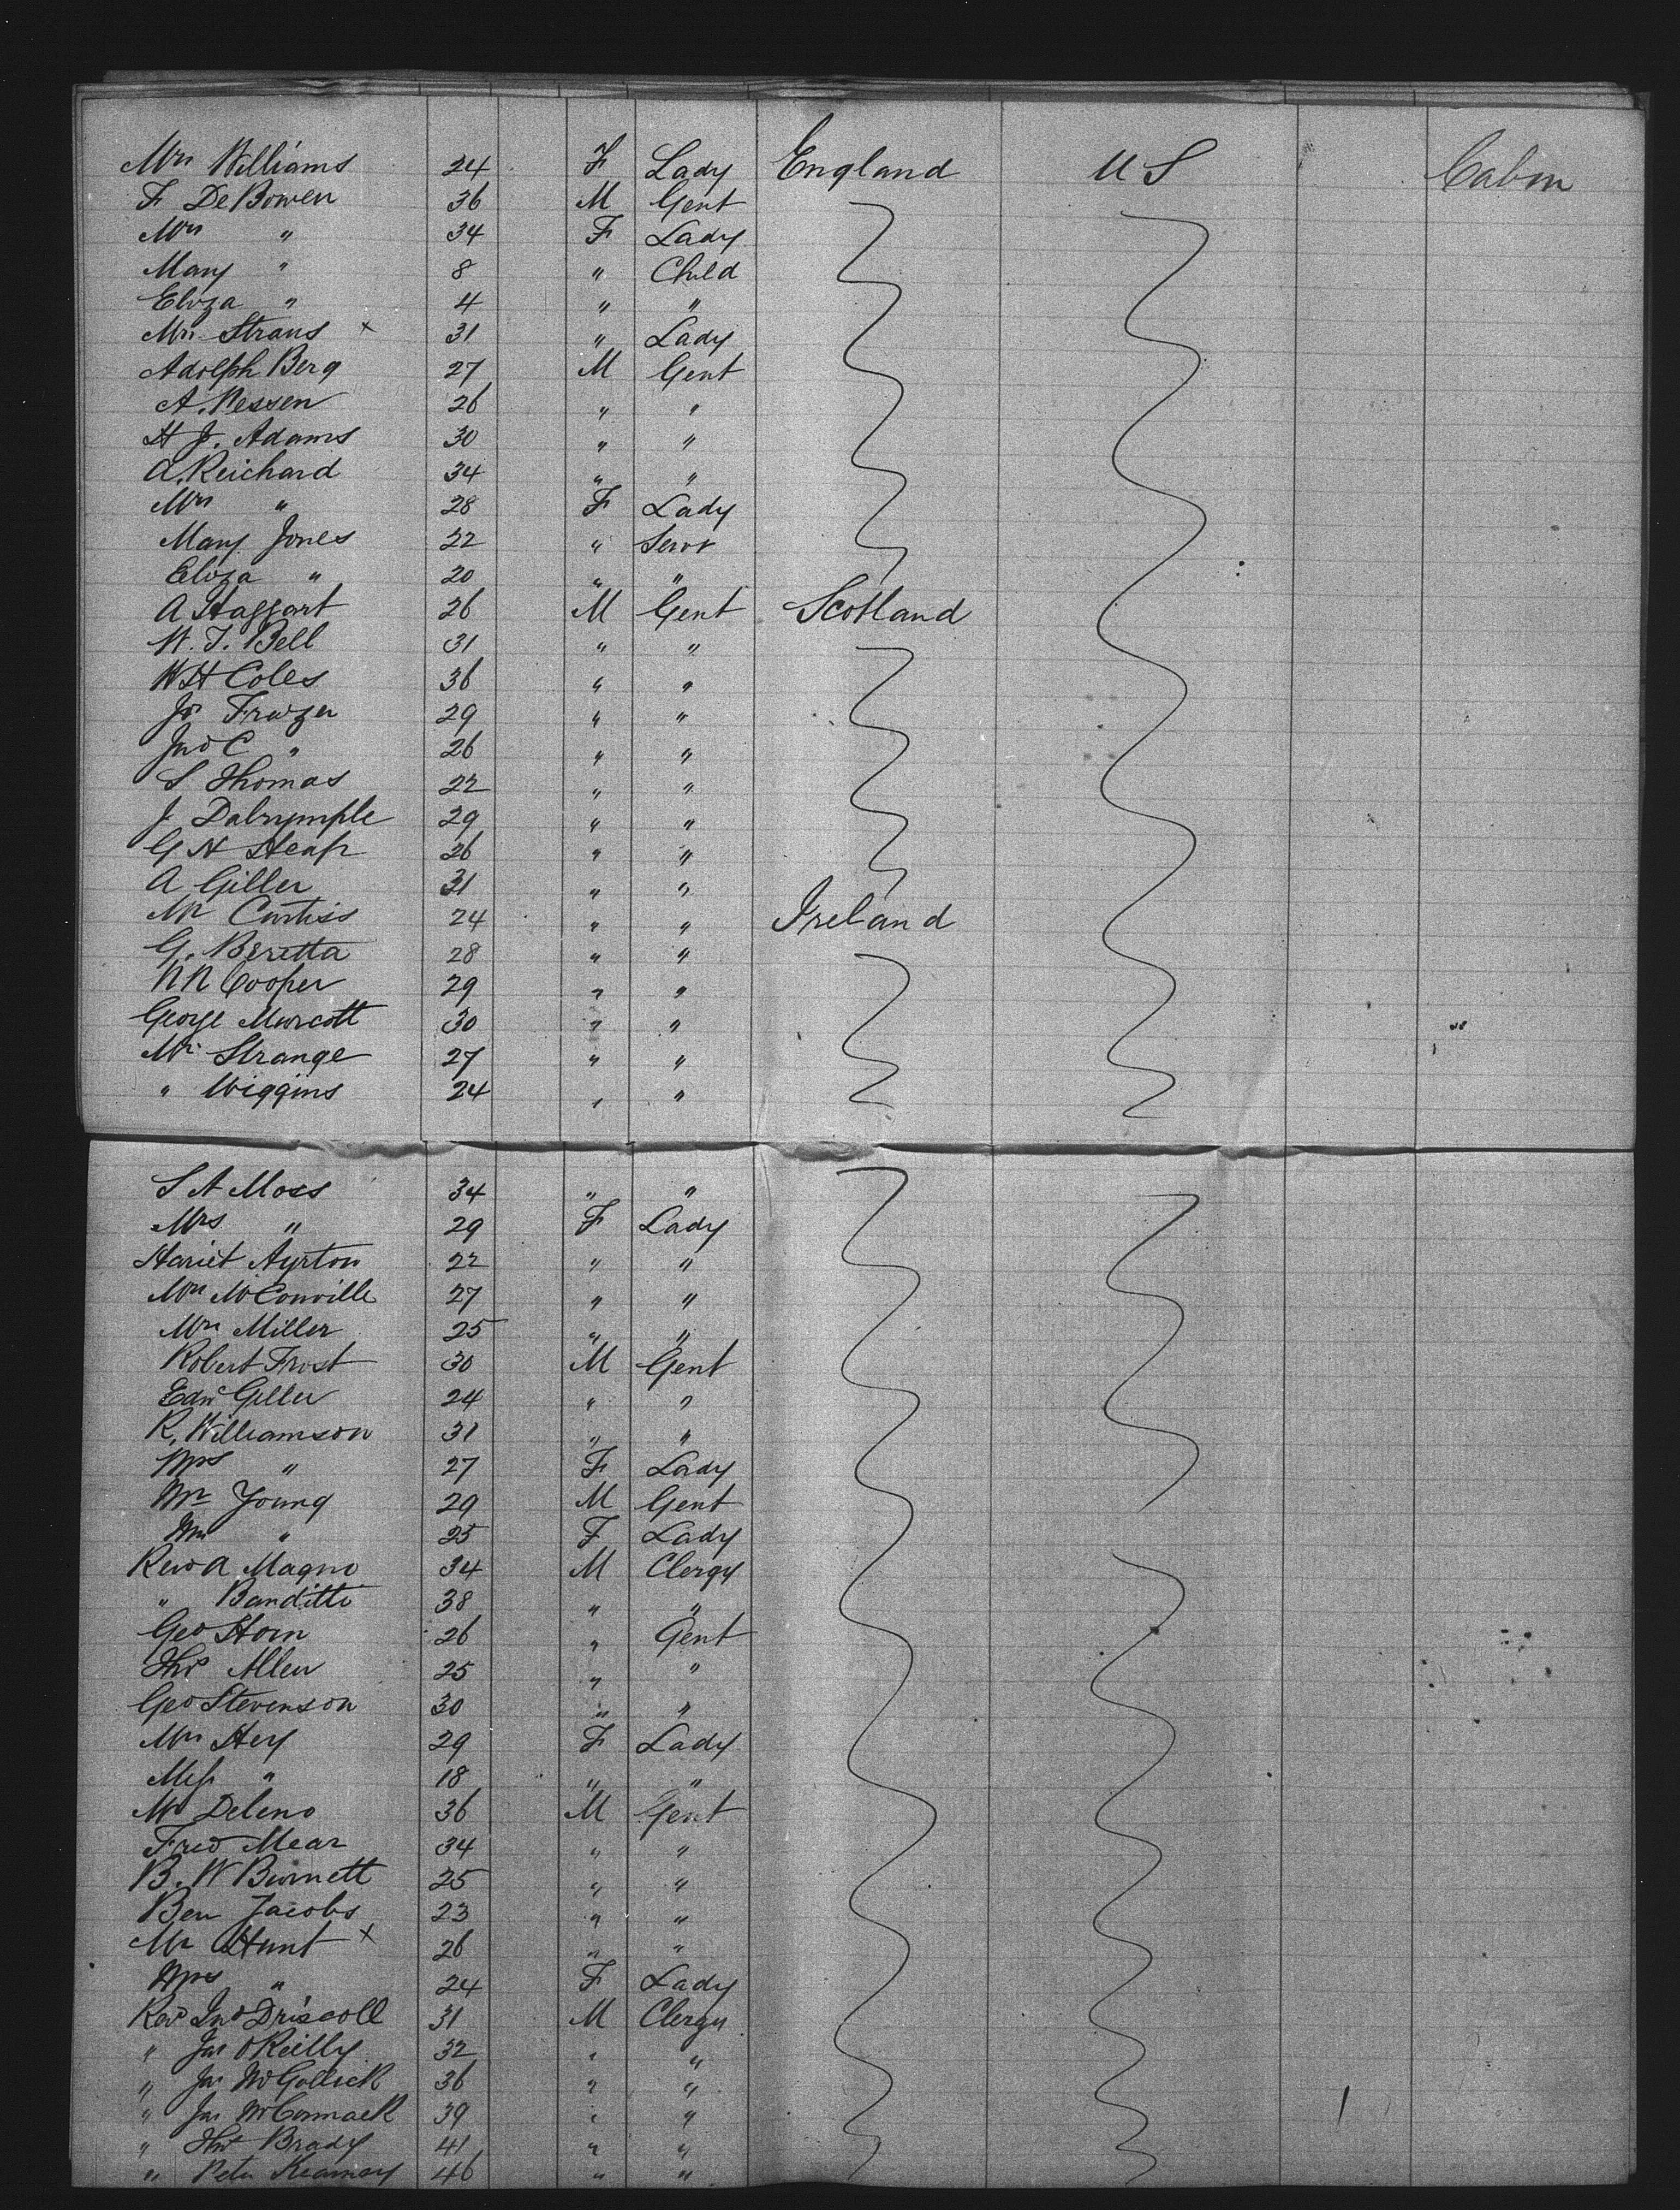 Mrs Williams 24 F Lady England U S Cabin
F De Bowen 36 M Gent
Mrs " 34 F Lady
Mary " 8 " Child
Eliza " 4 " "
Mrs Straus x 31 " Lady
Adolph Berg 27 M Gent
A. Nessen 26 " "
H J. Adams 30 " "
A. Reichard 34 " "
Mrs " 28 F Lady
Mary Jones 22 " Servt
Eliza " 20 " "
A Haggart 26 M Gent Scotland
W. T. Bell 31 " "
W H Coles 36 " "
Js Frazer 29 " "
Jno C " 26 " "
S Thomas 22 " "
J Dalrymple 29 " "
G N Heap 26 " "
A Giller 31 " "
Mr Curtiss 24 " " Ireland
G. Beretta 28 " "
N N Cooper 29 " "
George Murcott 30 " "
Mr Strange 27 " "
" Wiggins 24 " "
S A Moss 34 " "
Mrs " 29 F Lady
Hariet Ayrton 22 " "
Mrs McConville 27 " "
Mrs Miller 25 " "
Robert Frost 30 M Gent
Edw Geller 24 " "
R. Williamson 31 " "
Mrs " 27 F Lady
Mr Young 29 M Gent
Mrs " 25 F Lady
Revd A Magno 34 M Clergy
" Banditti 38 " "
Geo Horn 26 " Gent
Thos Allen 25 " "
Geo Stevenson 30 " "
Mrs Hey 29 F Lady
Miss " 18 " "
Mr Deleno 36 M Gent
Fred Mear 34 " "
B. W Burnett 25 " "
Ben Jacobs 23 " "
Mr Hunt x 26 " "
Mrs " 24 F Lady
Revd Jno Driscoll 31 M Clergy
" Jas O'Reilly 32 " "
" Jas McGollick 36 " "
" Jas McCormack 39 " "
" Thos Brady 41 " "
" Peter Kearney 46 " "